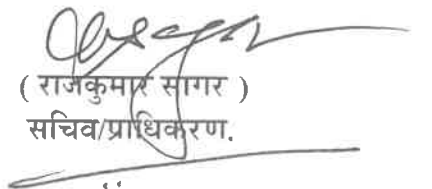 ( राजकुमार सागर )
सचिव/प्राधिकरण.